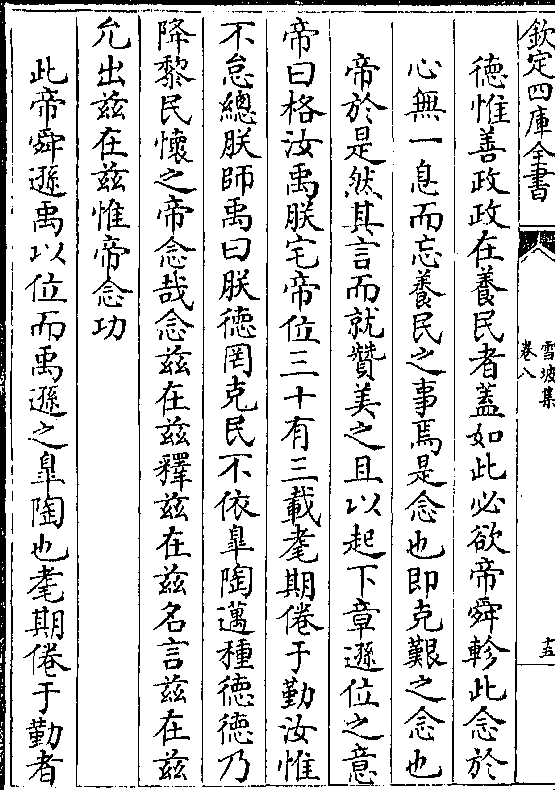 欽定四庫全書
雪坡集
卷八
德惟善政政在養民者蓋如此必欲帝舜軫此念於
心無一息而忘養民之事焉是念也即克艱之念也
帝於是然其言而就贊美之且以起下章遜位之意
帝曰格汝禹朕宅帝位三十有三載耄期倦于勤汝惟
不怠總朕師禹曰朕德罔克民不依臯陶邁種德德乃
降黎民懷之帝念哉念兹在兹釋兹在兹名言兹在兹
允出兹在兹惟帝念功
此帝舜遜禹以位而禹遜之臯陶也耄期倦于勤者